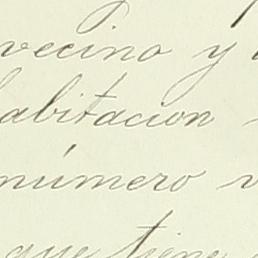 vecino y
habitacion
número
que tiene